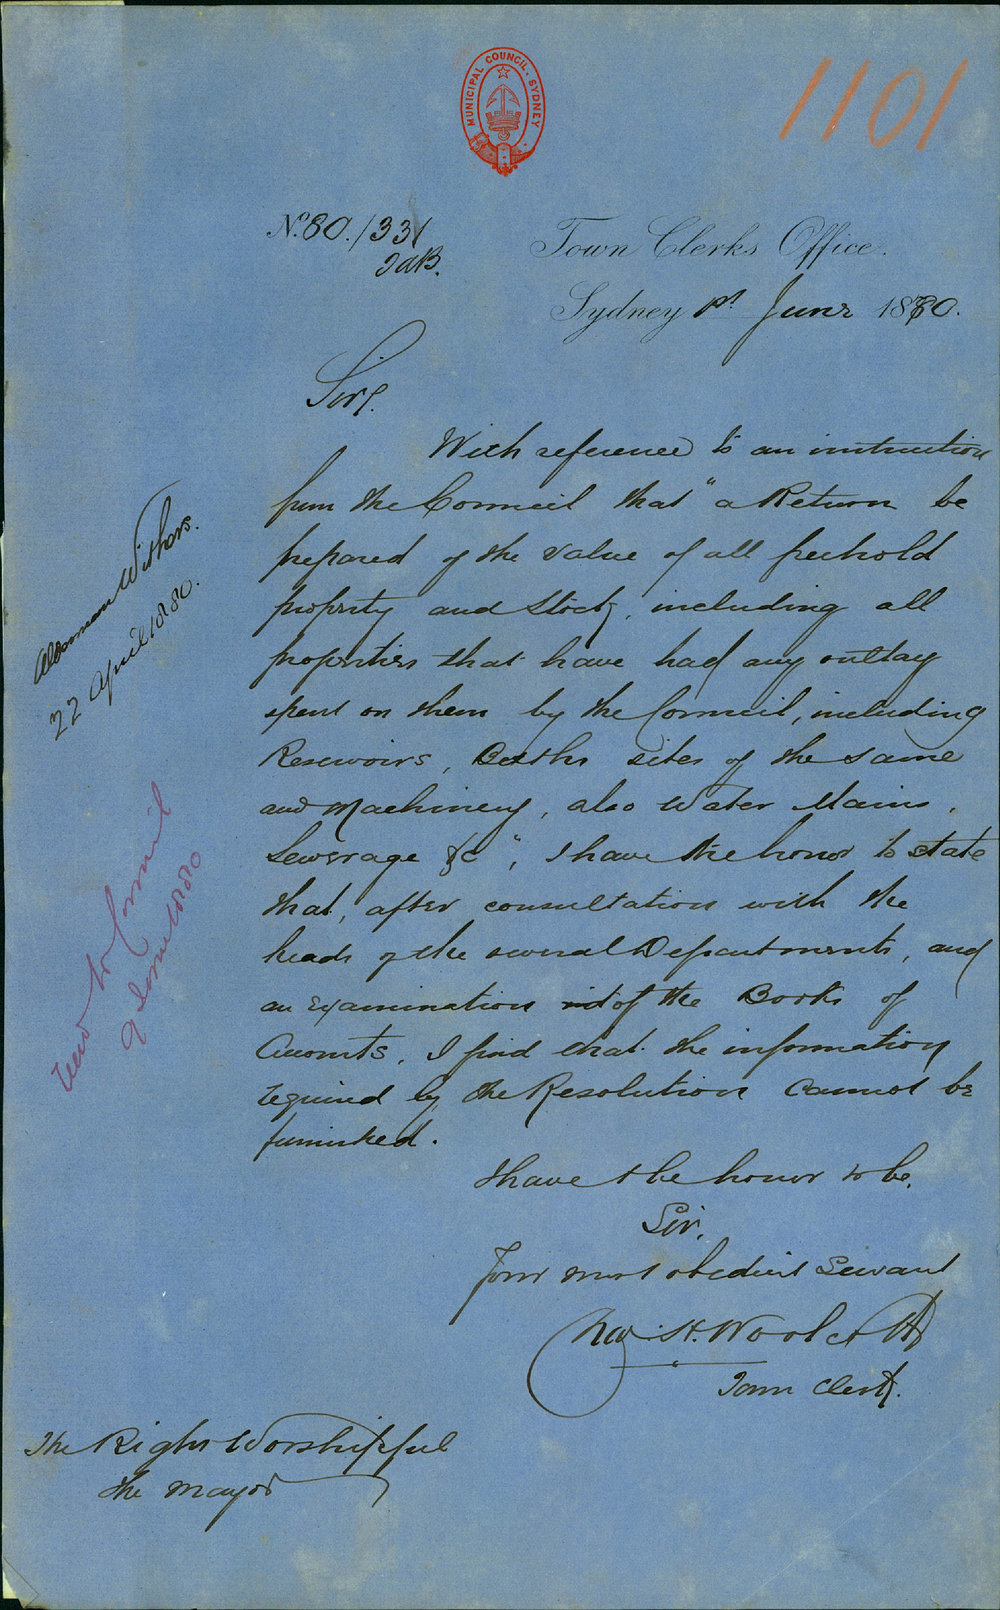 MUNICIPAL COUNCIL. SYDNEY
1101
No. 80./331
JAB.
Town Clerks Office.
Sydney 1st June 1880.
Sir,
With reference to an instruction
from the Council that "a Return be
prepared of the value of all freehold
property and Stock, including all
properties that have had any outlay
spent on them by the Council, including
Reservoirs, Baths sites of the same
and Machinery, also Water Mains,
Sewerage &c", I have the honor to state
that, after consultation with the
heads of the several Departments, and
an examination of the Books of
Accounts, I find that the information
required by the Resolution cannot be
furnished.
I have the honor to be,
Sir,
Your most obedient Servant
Chas. H. Woolcott
Town Clerk.
The Right Worshipful
the Mayor
Alderman Withers.
22 April 1880.
Read to Council
9 June 1880